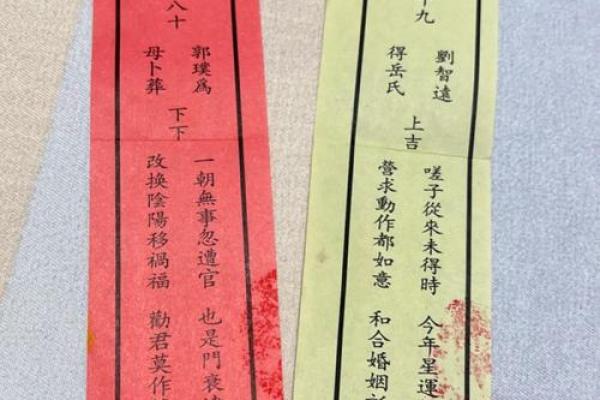 十九
劉智遠
得岳氏
上吉
嗟子從來未得時 今年星運
營求動作都如意 和合婚姻
八十
郭璞為
母卜葬
下下
一朝無事忽遭官 也是門衰
改換陰陽移禍福 勸君莫作